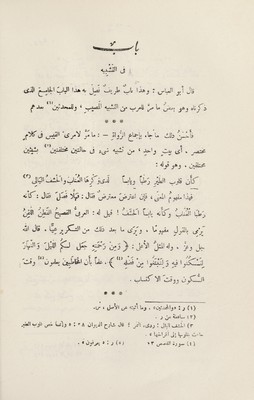 باب
فى التشبيه
قال أبو العباس : وهذا باب طريف نصل به هذا الباب الجامع الذى
ذكرناه وهو بعض ما مر للعرب من التشبيه المصيب ، وللمحدثين(١) بعدهم
***
فأحسن ذلك ما جاء بإجماع الرواة : ما مر لامرئ القيس فى كلام
مختصر ، أى بيت واحد ، من تشبيه شىء فى حالتين مختلفتين(٢) بشيئين
مختلفين . وهو قوله :
كأن قلوب الطير رطبا ويابسا لدى وكرها العناب والحشف البالى(٣)
فهذا مفهوم المعنى ، فإن اعترض معترض فقال : فهلا فصل فقال : كأنه
رطبا العناب وكأنه يابسا الحشف ! قيل له : العربى الفصيح الفطن اللقن
يرمى بالقول مفهوما ، ويرى ما بعد ذلك من التكرير عيا . قال الله
جل وعز ، وله المثل الأعلى : ﴿ ومن رحمته جعل لكم الليل والنهار
لتسكنوا فيه ولتبتغوا من فضله(٤) ﴾ . علما بأن المخاطبين يعلمون(٥) وقت
السكون ووقت الاكتساب .
***
(١) ر : «والمحدثين» . وما أثبته عن الأصل ، س .
(٢) ساقطة من ر .
(٤) سورة القصص ٧٣ (٥) ر : يعرفون